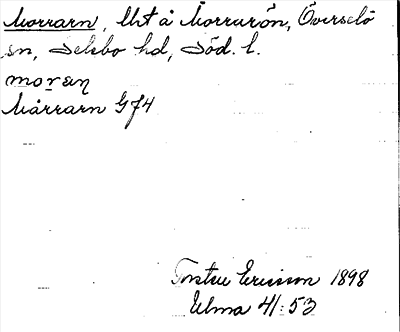 Morrarn, Ust å Morrarön, Överselö
sn, Selebo hd, Söd. l.
moran
Mårrarn Gf4
Torsten Ericsson 1898
Elma 41:53